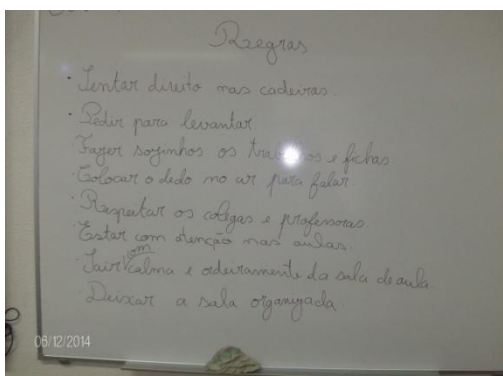 Regras
· Sentar direito nas cadeiras
· Pedir para levantar
· Fazer sozinhos os trabalhos e fichas
· Colocar o dedo no ar para falar
· Respeitar os colegas e professoras.
· Estar com atenção nas aulas.
· Sair com calma e ordeiramente da sala de aula.
· Deixar a sala organizada
06/12/2014